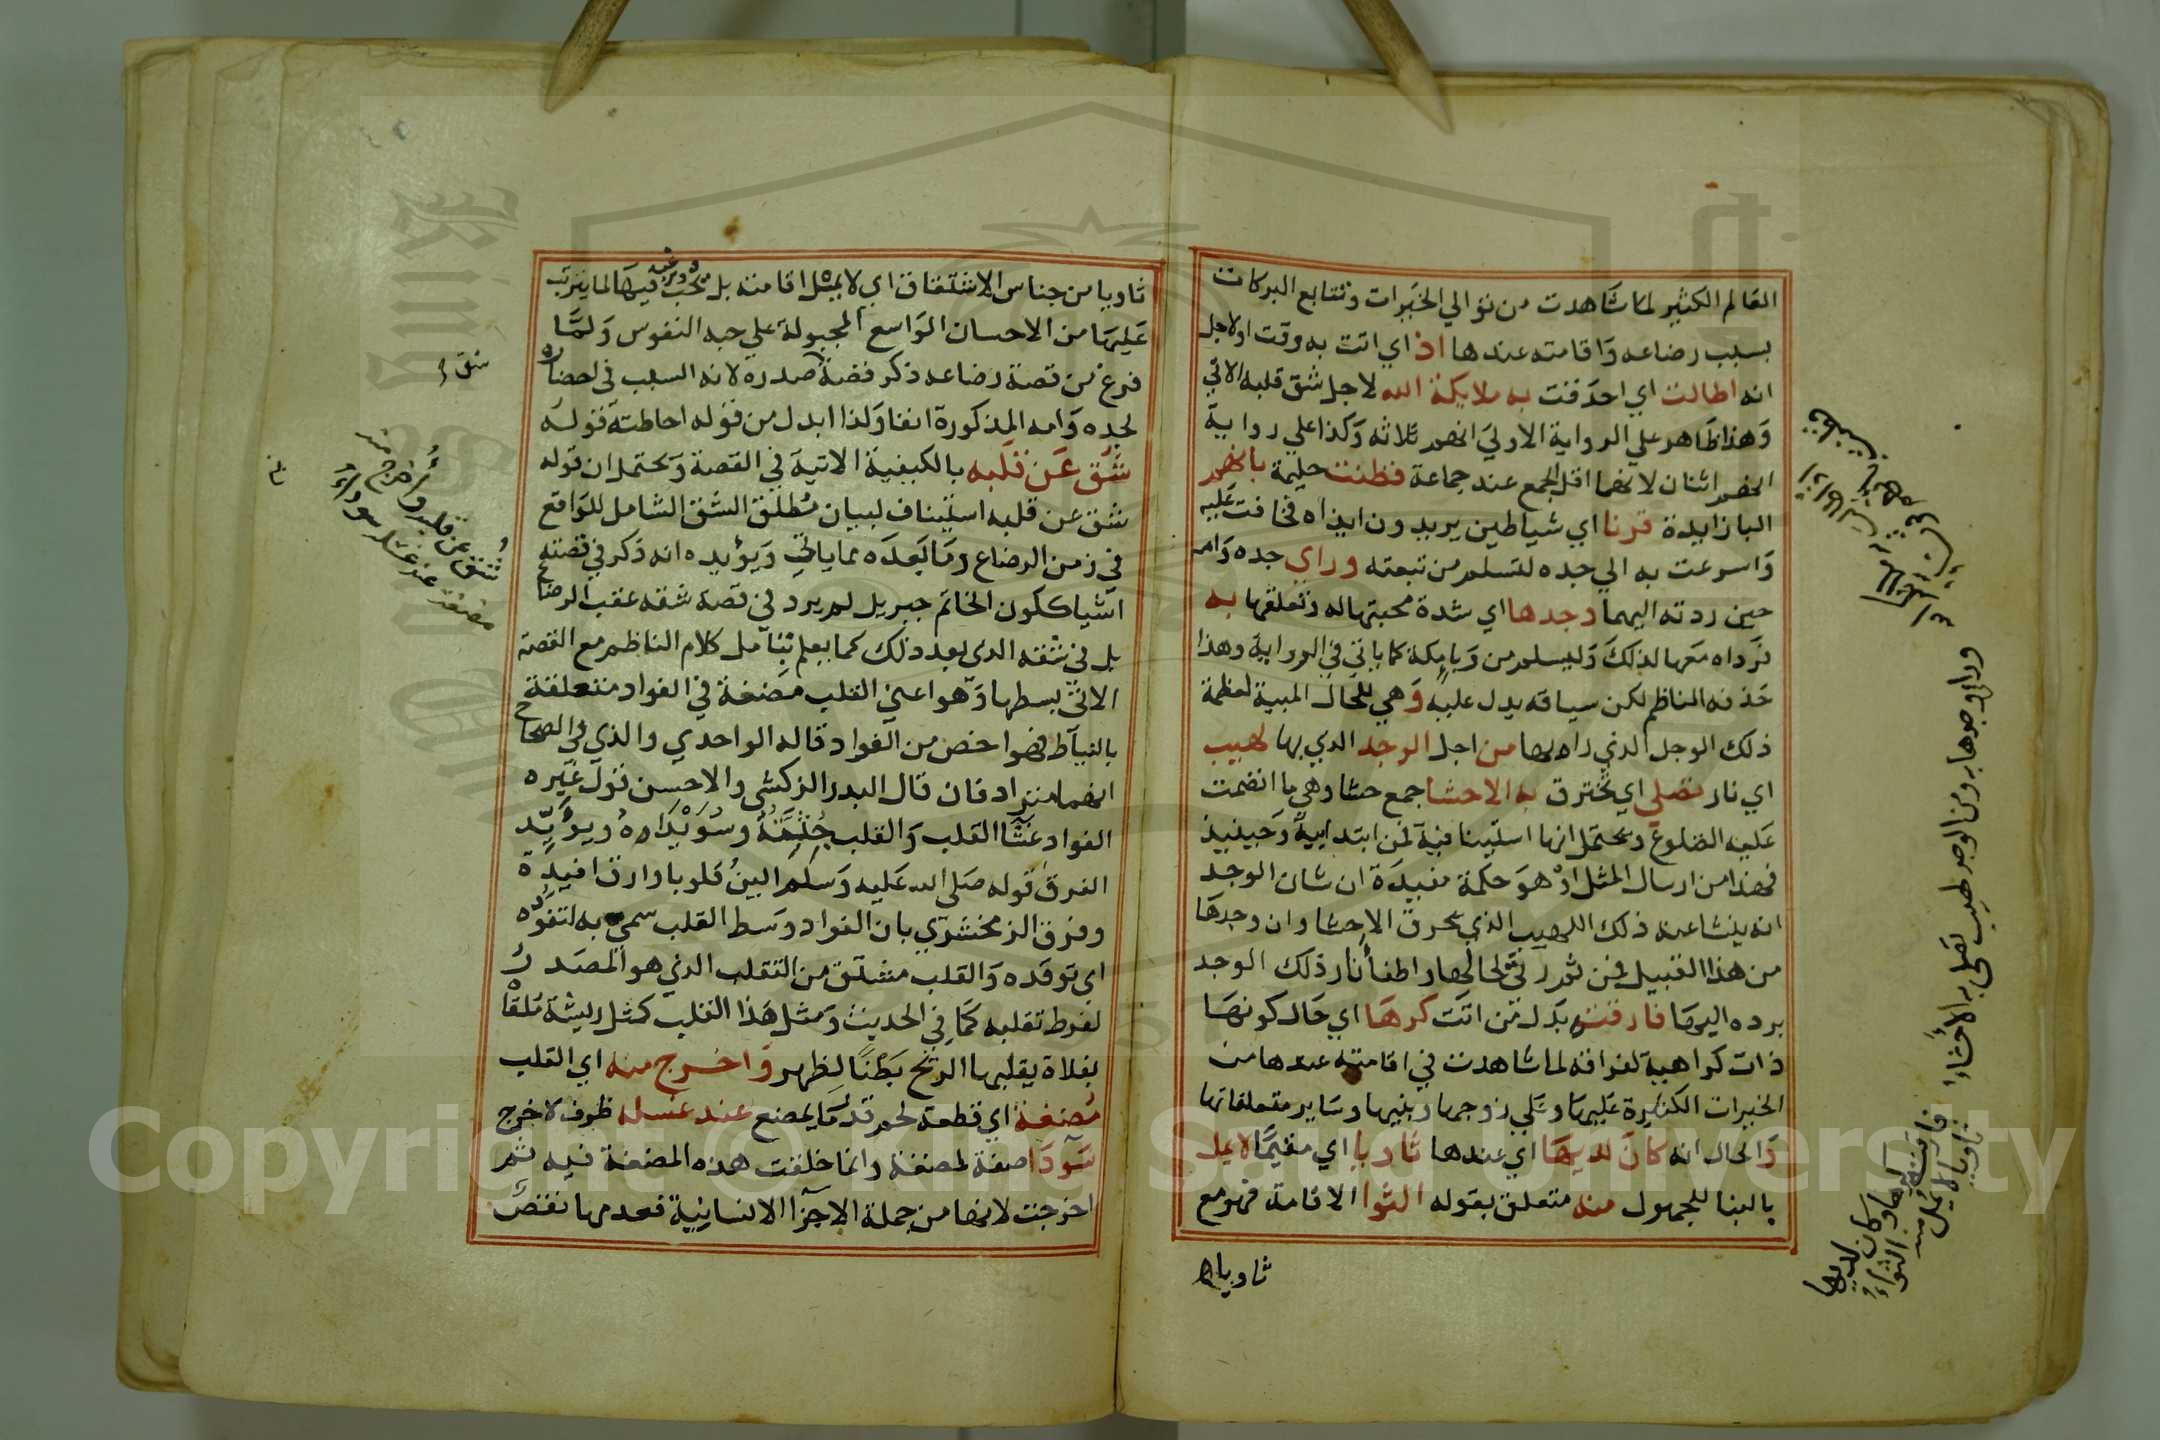 العالم الكثير لما شاهدت من توالي الخيرات وتتابع البركات
بسبب رضاعه واقامته عندها اذ اي اتت به وقت او لاجل
انه احاطت اي احدقت به ملايكة الله لاجل شق قلبه الاتي
وهذا ظاهر علي الرواية الاولي انهم ثلاثه وكذا علي رواية
انهم اثنان لانهما اقل الجمع عند جماعة فظنت حليمة بانهم
البازايدة قرنا اي شياطين يريدون ايذاه فخافت عليه
واسرعت به الي جده لتسلم من تبعته وراي جده وامه
حين ردته اليهما وجدها اي شدة محبتها له وتعلقها به
فرداه معها لذلك وليسلم من وبا مكة كما ياتي في الرواية وهذا
حذفه الناظم لكن سياقه يدل عليه وهي للحال المبية لعظمة
ذلك الوجل الذي راه بها من اجل الوجد الذي بها لهيب
اي نار تصلي اي تحترق به الاحشا جمع حشا وهي ما انضمت
عليه الضلوع ويحتمل انها استينافية لمن ابتدايية وحينيذ
فهذا من ارسال المثل اذ هو حكمة مفيدة ان شان الوجد
انه ينشا عنه ذلك اللهيب الذي يحرق الاحشا وان وجدها
من هذا القبيل فمن ثم رثي لحالها واطفأ نار ذلك الوجد
برده اليها فارقته بدل من اتت كرها اي حال كونها
ذات كراهية لفراقه لما شاهدت في اقامته عندها من
الخيرات الكثيرة عليها وعلي زوجها وبنيها وساير متعلقاتها
والحال انه كان لديها اي عندها ثاويا اي مقيما لا يمل
بالبنا للمجهول منه متعلق بقوله الثوا الاقامة فهو مع
ثاويا
وراي وجدها به ومن الوجد لهيب تصلي به الاحشاءُ
فارقته كرها وكان لديها
ثاويا لا يمل منه الثواءُ
ثاويا من جناس الاشتقاق اي لا يمل اقامته بل يحب ويرغب فيها لما يترتب
عليها من الاحسان الواسع المجبولة علي حبه النفوس ولما
فرغ من قصة رضاعه ذكر قصة صدره لانه السبب في احضاره
لجده وامه المذكورة انفا ولذا ابدل من قوله احاطت قوله
شق عن قلبه بالكيفية الاتية في القصة ويحتمل ان قوله
شق عن قلبه استيناف لبيان مطلق الشق الشامل للواقع
في زمن الرضاع وما بعده مما ياتي ويؤيده انه ذكر في قصته
اشيا ككون الخاتم جبريل لم يرد في قصة شقه عقب الرضاع
بل في شقه الذي بعد ذلك كما يعلم بتامل كلام الناظم مع القصة
الاتي بسطها وهو اعني القلب مضغة في الفواد متعلقة
بالنياط فهو اخص من الفواد قاله الواحدي والذي في الصحاح
انهما مترادفان قال البدر الزركشي والاحسن قول غيره
الفواد غشا القلب والقلب جثته وسويداوه ويؤيد
الفرق قوله صلي الله عليه وسلم الين قلوبا وارق افيدة
وفرق الزمخشري بان الفواد وسط القلب سمي به لتفوده
اي توقده والقلب مشتق من التقلب الذي هو المصدر
لفرط تقلبه كما في الحديث ومثل هذا القلب كمثل ريشة ملقاة
بفلاة يقلبها الريح بطنا لظهر واخرج منه اي القلب
مضغة اي قطعة لحم قدر ما يمضغ عند غسله ظرف لاخرج
سودا صفة لمضغة وانما خلقت هذه المضغة فيه ثم
اخرجت لانها من جملة الاجزا الانسانية فعدمها نقص
شق
شُق عن قلبه وأُخرج منه
مضغة عند غسله سوداءُ
Copyright © King Saud University
King Saud University